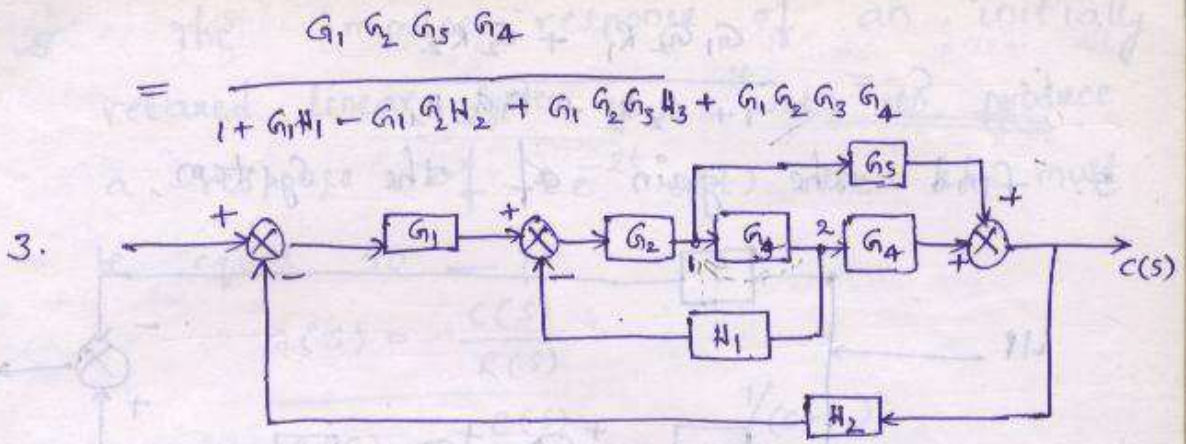 G₁ G₂ G₃ G₄
=
1 + G₁H₁ - G₁G₂H₂ + G₁G₂G₃H₃ + G₁G₂G₃G₄
G₅
3. + G₁ + G₂ 1 G₃ 2 G₄ + +
- - C(S)
H₁
H₂